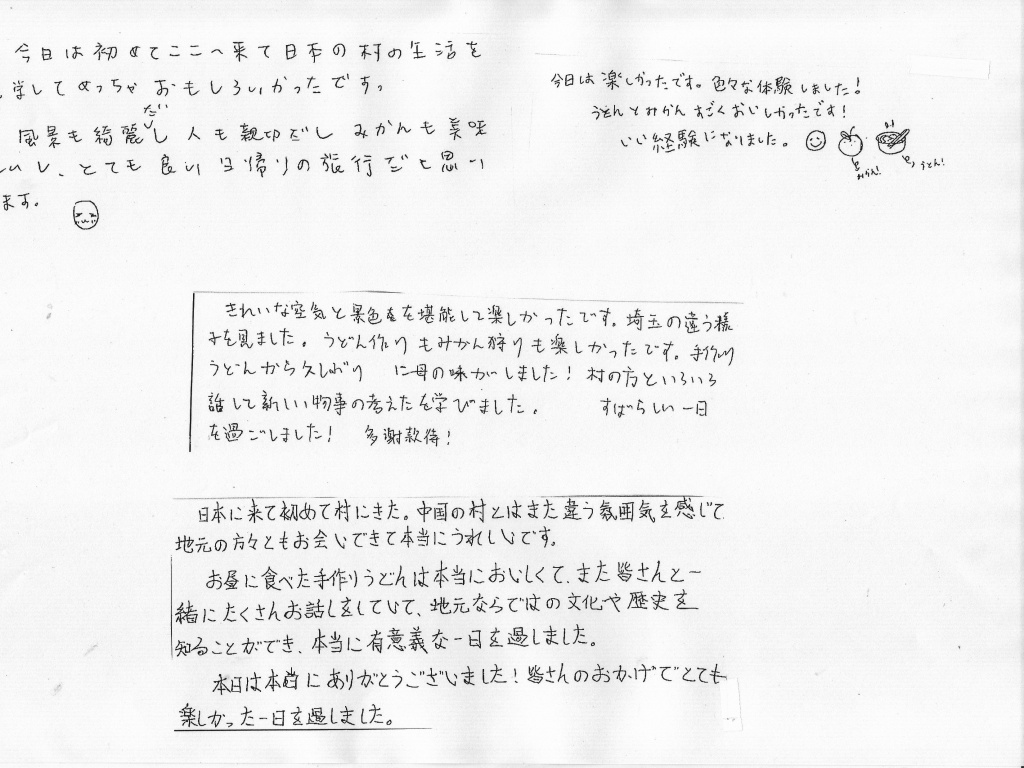 今日は初めてここへ来て日本の村の生活を
学してめっちゃおもしろいかったです。
風景も綺麗だし人も親切だしみかんも美味
しいし、とても良い日帰りの旅行だと思い
ます。
今日は楽しかったです。色々な体験しました!
うどんとみかんすごくおいしかったです!
いい経験になりました。
みかん!
うどん!
きれいな空気と景色を堪能して楽しかったです。埼玉の違う様
子を見ました。うどん作りもみかん狩りも楽しかったです。手作り
うどんから久しぶりに母の味がしました!村の方といろいろ
話して新しい物事の考えたを学びました。すばらしい一日
を過ごしました!多謝款待!
日本に来て初めて村にきた。中国の村とはまた違う雰囲気を感じて
地元の方々ともお会いできて本当にうれしいです。
お昼に食べた手作りうどんは本当においしくて、また皆さんと一
緒にたくさんお話しをしていて、地元ならではの文化や歴史を
知ることができ、本当に有意義な一日を過しました。
本日は本当にありがとうございました!皆さんのおかげでとても
楽しかった一日を過しました。